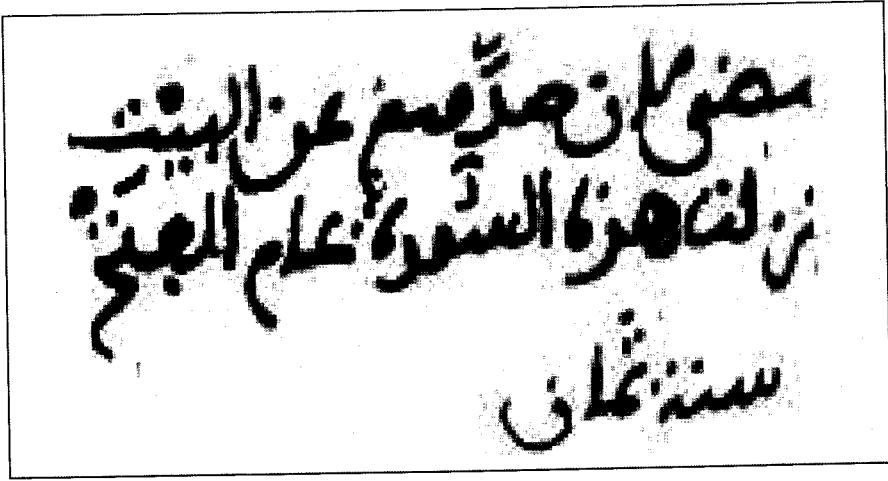 مضى صدّهم عن البيت
نزلت هذه السورة عام الفتح
سنة ثمان